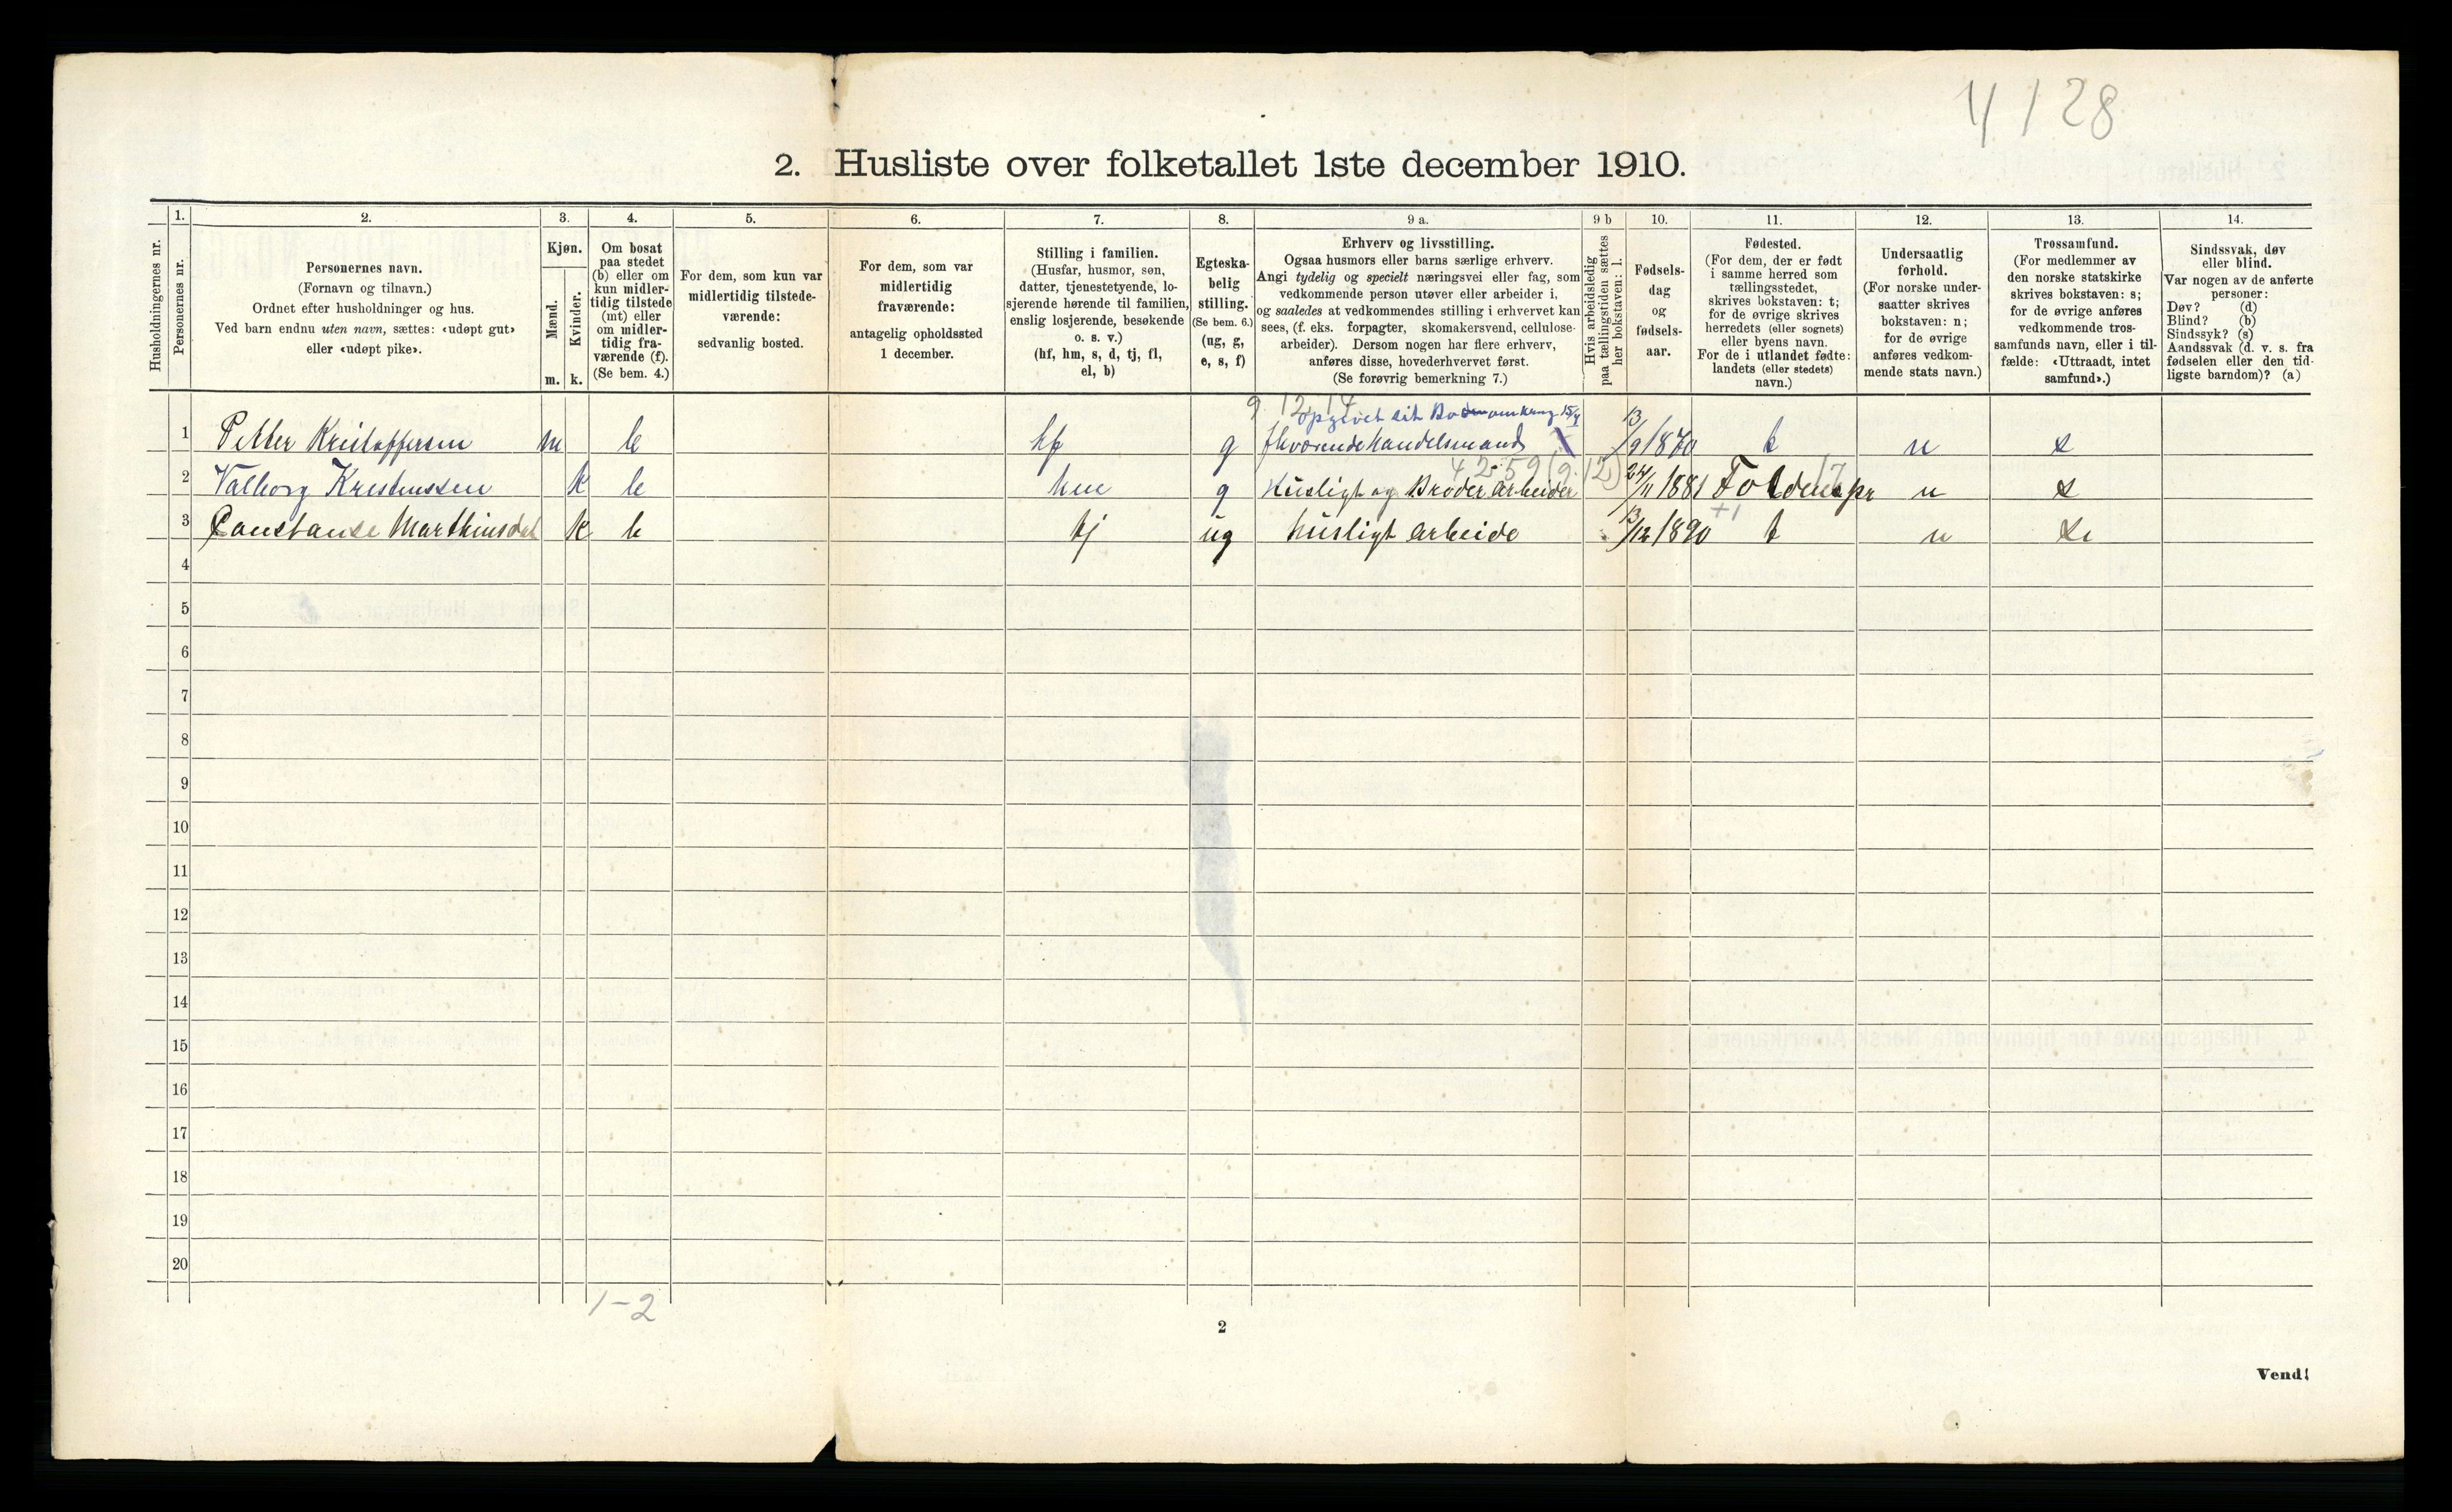 4128
2. Husliste over folketallet 1ste december 1910.
Husholdningernes nr.
1.
Personernes nr.
2.
Personernes navn.
(Fornavn og tilnavn.)
Ordnet efter husholdninger og hus.
Ved barn endnu uten navn, sættes: «udøpt gut»
eller «udøpt pike».
3.
Kjøn.
Mænd.
m.
Kvinder.
k.
4.
Om bosat
paa stedet
(b) eller om
kun midler-
tidig tilstede
(mt) eller
om midler-
tidig fra-
værende (f).
(Se bem. 4.)
5.
For dem, som kun var
midlertidig tilstede-
værende:
sedvanlig bosted.
6.
For dem, som var
midlertidig
fraværende:
antagelig opholdssted
1 december.
7.
Stilling i familien.
(Husfar, husmor, søn,
datter, tjenestetyende, lo-
sjerende hørende til familien,
enslig losjerende, besøkende
o. s. v.)
(hf, hm, s, d, tj, fl,
el, b)
8.
Egteska-
belig
stilling.
(Se bem. 6.)
(ug, g,
e, s, f)
9 a.
Erhverv og livsstilling.
Ogsaa husmors eller barns særlige erhverv.
Angi tydelig og specielt næringsvei eller fag, som
vedkommende person utøver eller arbeider i,
og saaledes at vedkommendes stilling i erhvervet kan
sees, (f. eks. forpagter, skomakersvend, cellulose-
arbeider). Dersom nogen har flere erhverv,
anføres disse, hovederhvervet først.
(Se forøvrig bemerkning 7.)
9 b
Hvis arbeidsledig
paa tællingstiden sættes
her bokstaven: l.
10.
Fødsels-
dag
og
fødsels-
aar.
11.
Fødested.
(For dem, der er født
i samme herred som
tællingsstedet,
skrives bokstaven: t;
for de øvrige skrives
herredets (eller sognets)
eller byens navn.
For de i utlandet fødte:
landets (eller stedets)
navn.)
12.
Undersaatlig
forhold.
(For norske under-
saatter skrives
bokstaven: n;
for de øvrige
anføres vedkom-
mende stats navn.)
13.
Trossamfund.
(For medlemmer av
den norske statskirke
skrives bokstaven: s;
for de øvrige anføres
vedkommende tros-
samfunds navn, eller i til-
fælde: «Uttraadt, intet
samfund».)
14.
Sindssvak, døv
eller blind.
Var nogen av de anførte
personer:
Døv? (d)
Blind? (b)
Sindssyk? (s)
Aandssvak (d. v. s. fra
fødselen eller den tid-
ligste barndom)? (a)
9. 12. 14
opgivet sit Bo omkring
1 Petter Kristoffersen m b hf g fhværende handelsmand 13/9 1870 t n s
42-59 (9.12) 17
2 Valborg Kristensen k b hm g Husligt og Broderarbeider 24/11 1881 Foldens pr n s
+1
3 Constanse Marthinsdat k b tj ug husligt arbeide 13/12 1890 t n s
4
5
6
7
8
9
10
11
12
13
14
15
16
17
18
19
20
1-2
2
Vend!